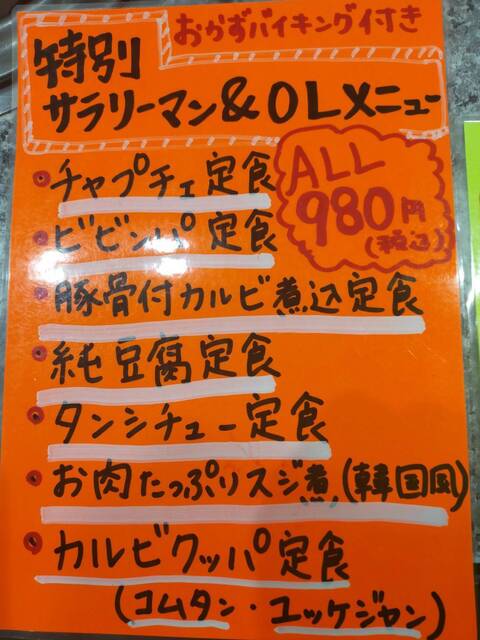 おかずバイキング付き
特別
サラリーマン&OLメニュー
ALL
980円
(税込)
チャプチェ定食
ビビンバ定食
豚骨付カルビ煮込定食
純豆腐定食
タンシチュー定食
お肉たっぷりスジ煮(韓国風)
カルビクッパ定食
(コムタン・ユッケジャン)